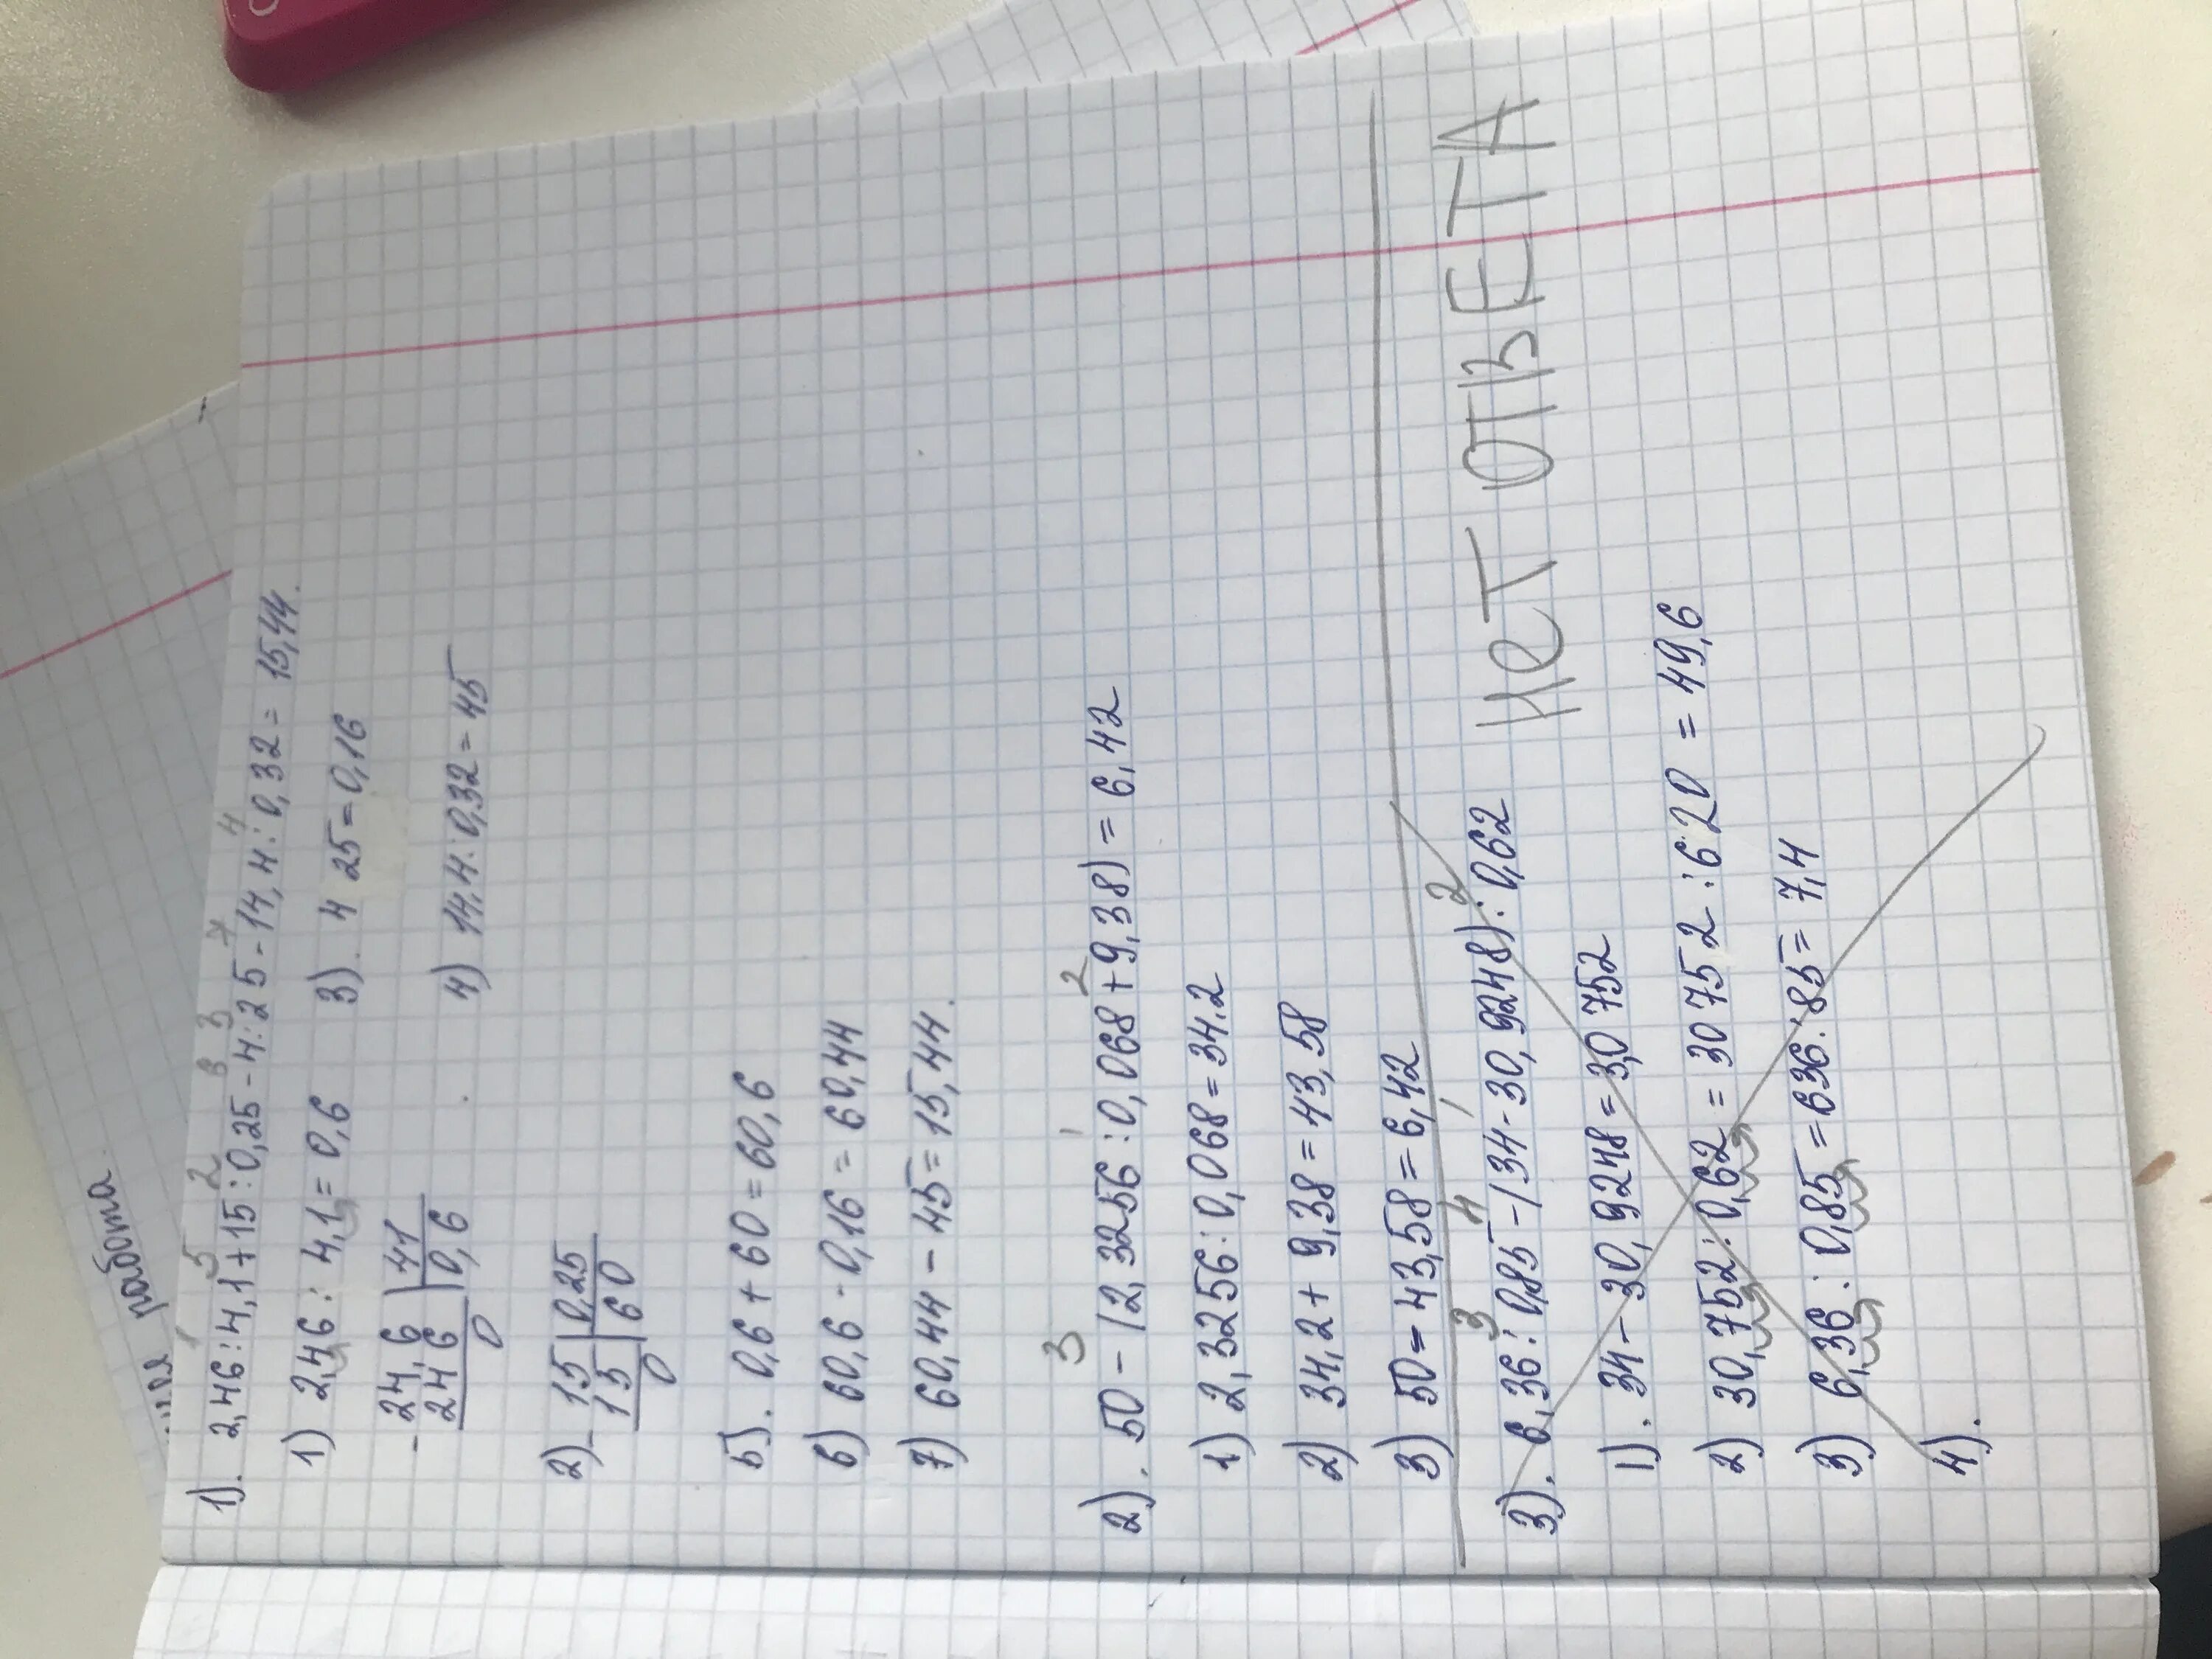 работа.
1). 2,46:4,1+15:0,25-4:25-14,4:0,32=15,44.
1 5 2 6 3 7 4
1) 2,46:4,1=0,6 3). 4 25=0,16
-24,6 | 41
24 6 | 0,6
0
4) 14,4:0,32=45
2) -15 | 0,25
15 | 60
0
5). 0,6+60=60,6
6) 60,6-0,16=60,44
7) 60,44-45=15,44.
3 1 2
2). 50-(2,3256:0,068+9,38)=6,42
1) 2,3256:0,068=34,2
2) 34,2+9,38=43,58
3) 50=43,58=6,42
3 4 1 2
3). 6,36:0,85-(34-30,9248):0,62 НеТ ОТВЕТА
1). 34-30,9248=3,0752
2) 30,752:0,62=30752:620=49,6
3) 6,36:0,85=636:85=7,4
4).